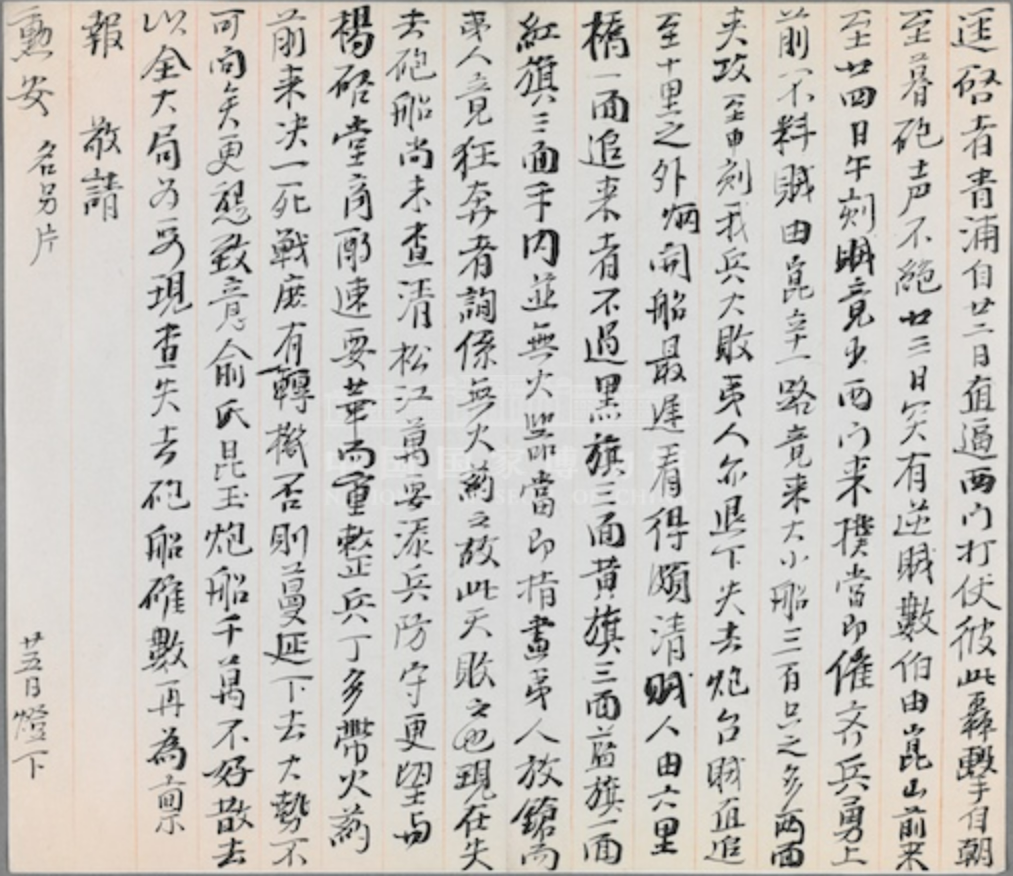 逕啓者青浦自廿二日直逼西门打仗彼此轟擊自朝
至暮砲声不絶廿三日突有逆賊數伯由崑山前来
至廿四日午刻賊竟出西门来撲當即催齐兵勇上
前不料賊由崑辛一路竟来大小船三百只之多兩面
夹攻至申刻我兵大敗弟人亦退下失去炮台賊直追
至十里之外炳開船最遲看得頗清賊人由六里
橋一面追来者不過黑旗三面黄旗三面藍旗一面
紅旗三面手内並無火器當即指畫弟人放鎗而
弟人竟狂奔者詢係無火药之故此天敗之也現在失
去砲船尚未查清松江萬要添兵防守更望与
楊啓堂商酌速要華而重整兵丁多帶火药
前来决一死戰庶有轉機否則蔓延下去大勢不
可问矣更懇致意俞氏昆玉炮船千萬不好散去
以全大局为要現查失去砲船確數再為禀
報 敬請
勳安 名另片
廿五日燈下
中國国家博物
NATIONAL MUSEUM OF CHINA